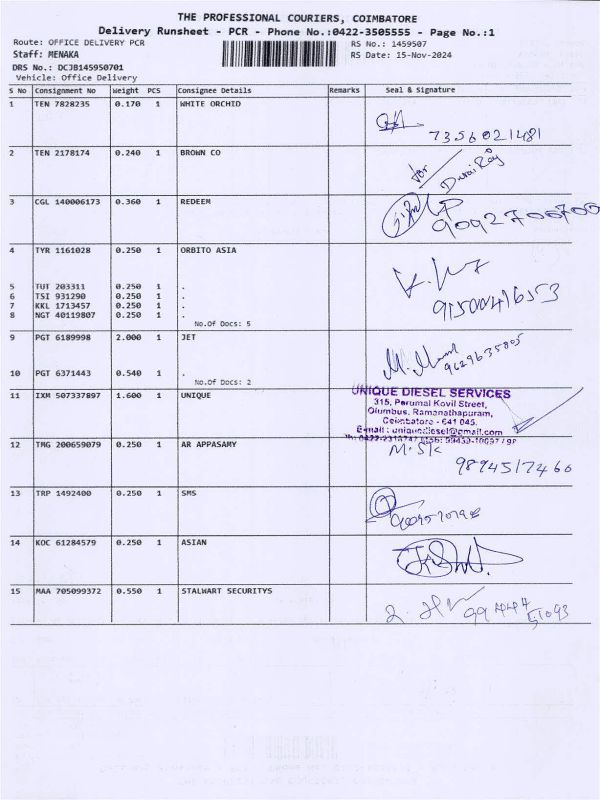 THE PROFESSIONAL COURIERS, COIMBATORE
Delivery Runsheet - PCR - Phone No.:0422-3505555 - Page No.:1
Route: OFFICE DELIVERY PCR RS No.: 1459507
Staff: MENAKA RS Date: 15-Nov-2024
DRS No.: DCJB145950701
Vehicle: Office Delivery
S No Consignment No Weight PCS Consignee Details Remarks Seal & Signature
1 TEN 7828235 0.170 1 WHITE ORCHID
7356021481
2 TEN 2178174 0.240 1 BROWN CO
for Durai Raj
3 CGL 140006173 0.360 1 REDEEM
9092700700
4 TYR 1161028 0.250 1 ORBITO ASIA
5 TUT 203311 0.250 1 .
6 TSI 931290 0.250 1 .
7 KKL 1713457 0.250 1 .
8 NGT 40119807 0.250 1 .
91500416553
No.Of Docs: 5
9 PGT 6189998 2.000 1 JET
9629635805
10 PGT 6371443 0.540 1 .
No.Of Docs: 2
11 IXM 507337897 1.600 1 UNIQUE
UNIQUE DIESEL SERVICES
315, Perumal Kovil Street,
Olumbus, Ramanathapuram,
Coimbatore - 641 045.
E-mail : uniquediesel@gmail.com
12 TMG 200659079 0.250 1 AR APPASAMY
9894517466
13 TRP 1492400 0.250 1 SMS
14 KOC 61284579 0.250 1 ASIAN
15 MAA 705099372 0.550 1 STALWART SECURITYS
99444